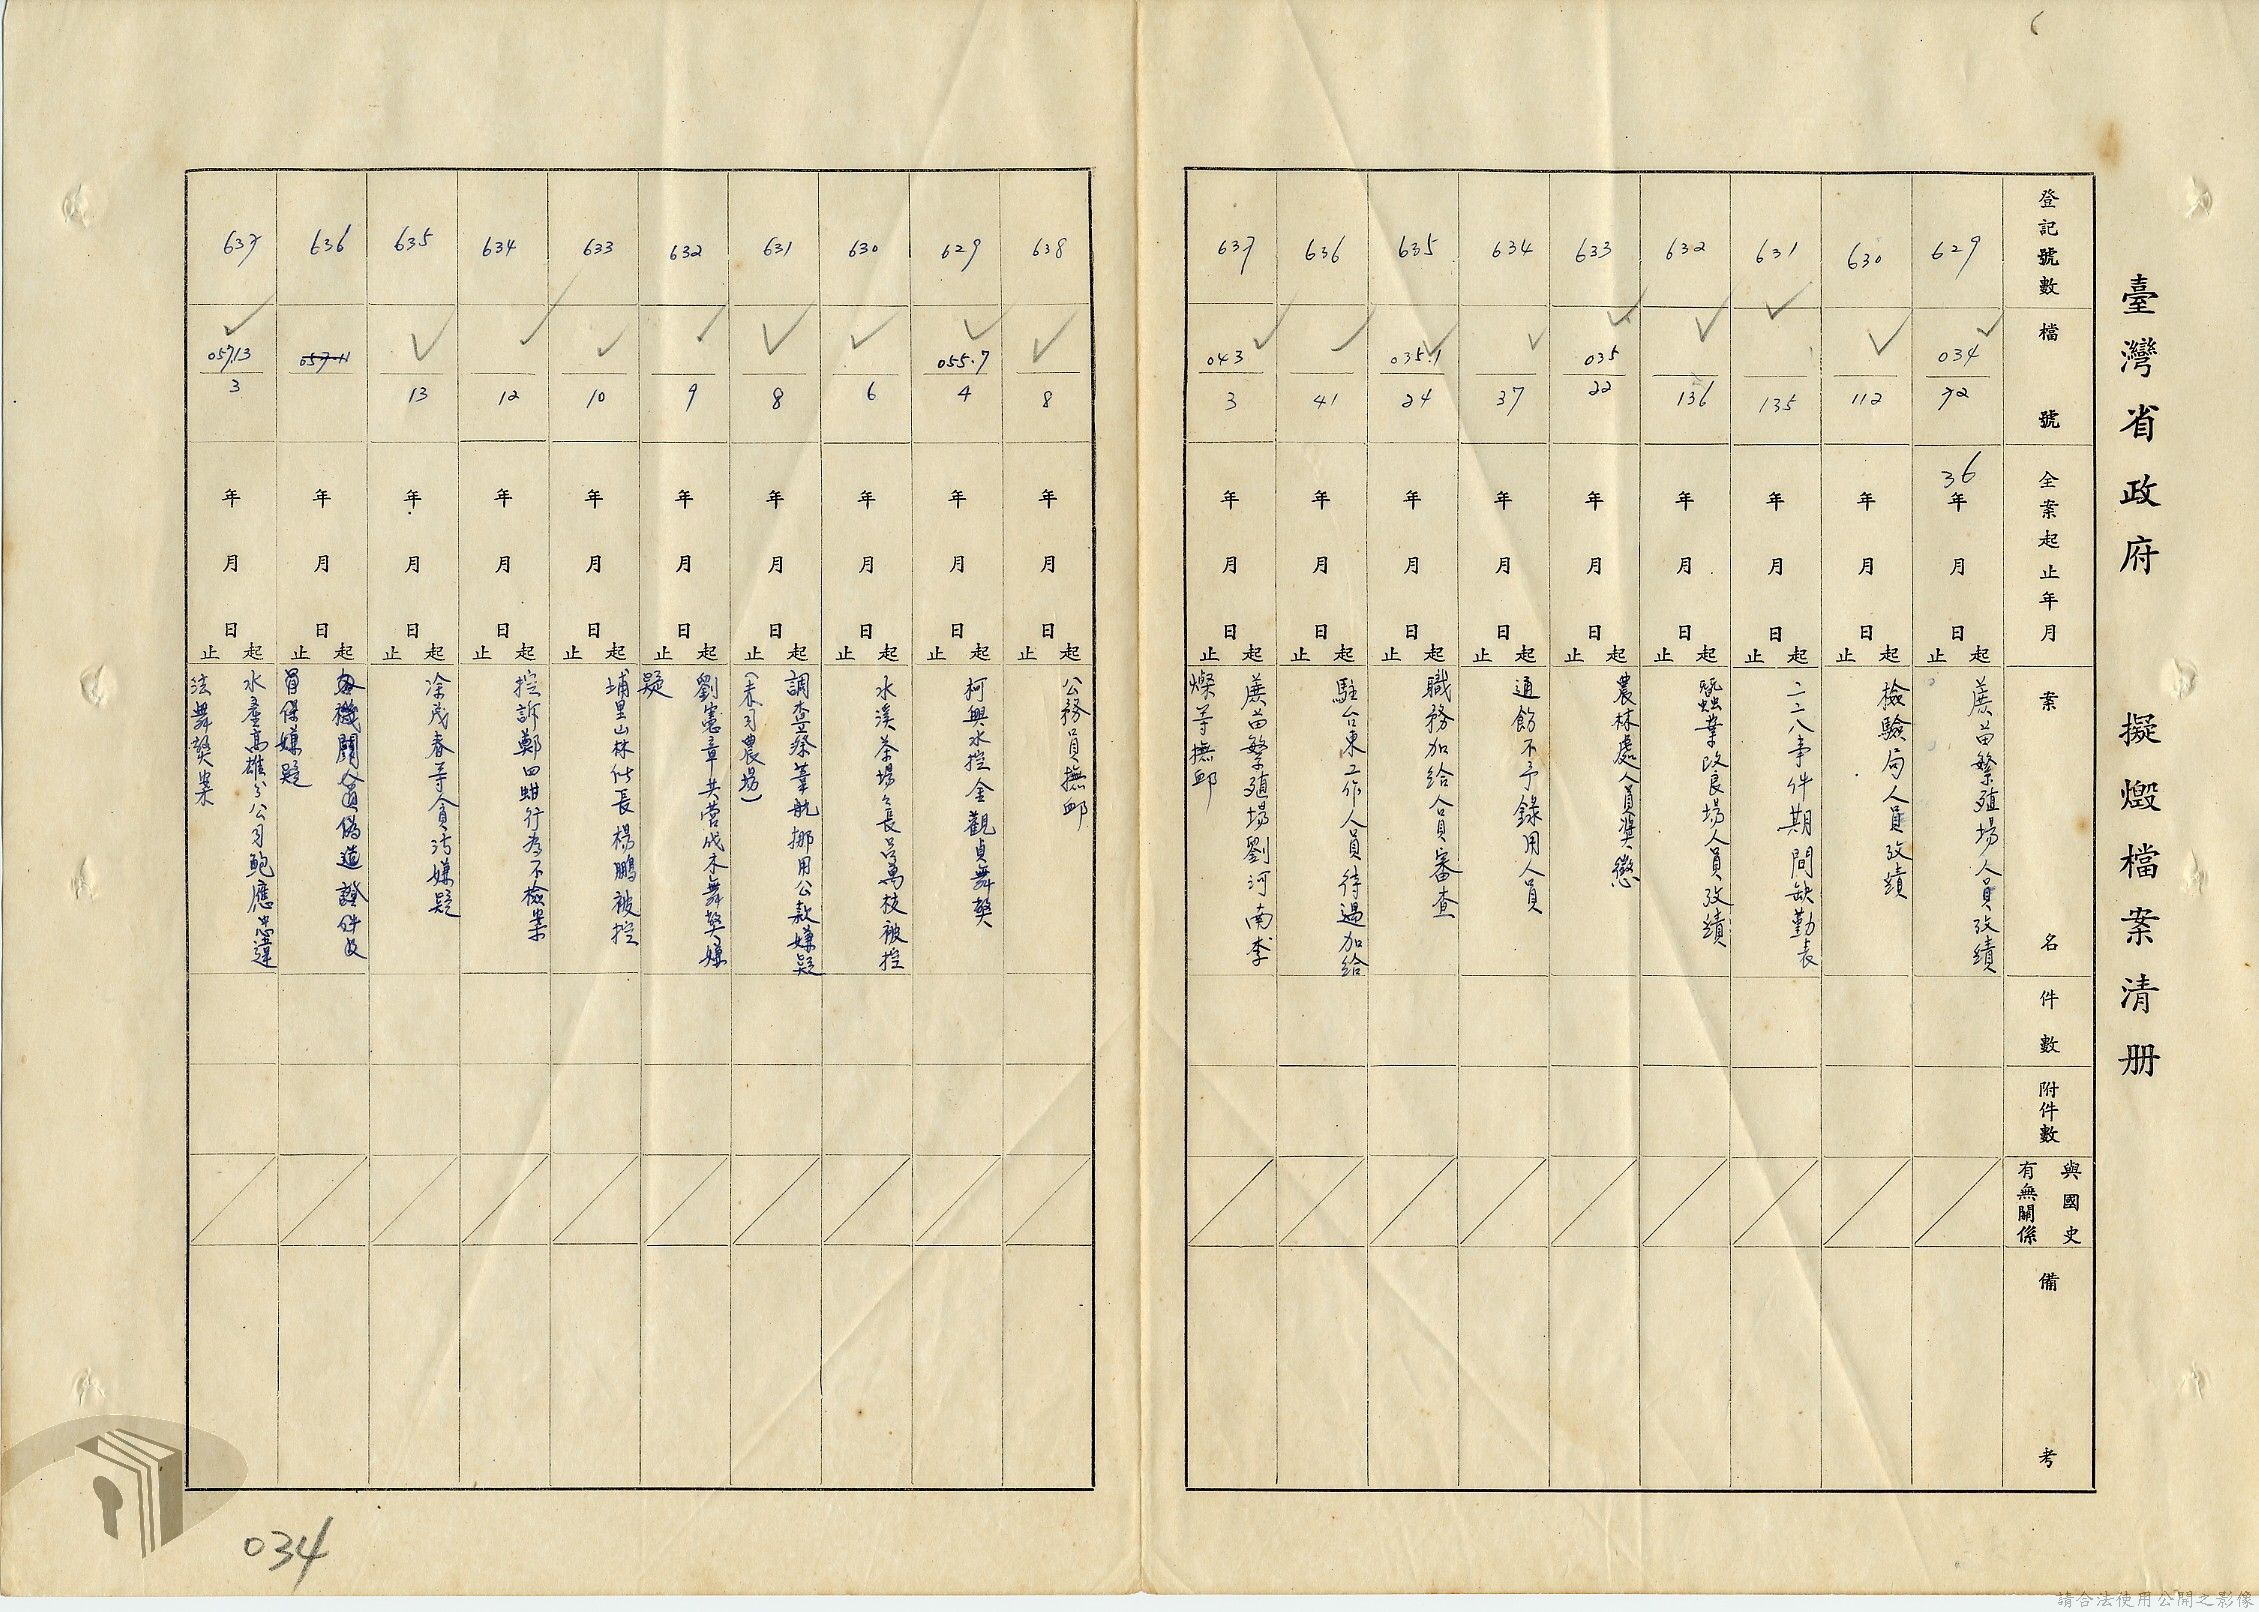 臺灣省政府 擬燬檔案清册
登記號數 檔號 全案起止年月 案名 件數 附件數 與國史有無關係 備考
629 034/72 36年 月 日起止 蔗苗繁殖場人員攷績
630 112 年 月 日起止 檢驗局人員攷績
631 135 年 月 日起止 二二八事件期間缺勤表
632 136 年 月 日起止 蠶業改良場人員攷績
633 035/22 年 月 日起止 農林處人員獎懲
634 37 年 月 日起止 通飭不予錄用人員
635 035.1/24 年 月 日起止 職務加給人員審查
636 41 年 月 日起止 駐台東工作人員待遇加給
637 043/3 年 月 日起止 蔗苗繁殖場劉河南李燦等撫卹
638 8 年 月 日起止 公務員撫卹
629 055.7/4 年 月 日起止 柯興水控金觀貞舞獘
630 6 年 月 日起止 水溪茶場場長呂萬枝被控
631 8 年 月 日起止 調查蔡葦航挪用公款嫌疑
632 9 年 月 日起止 劉憲章共營伐木舞獘嫌疑
633 10 年 月 日起止 埔里山林所長楊鵬被控
634 12 年 月 日起止 控訴鄭四蚶行為不檢案
635 13 年 月 日起止 涂茂春等貪污嫌疑
636 057.11 年 月 日起止 各機關人員偽造證件及冒保嫌疑
637 057.13/3 年 月 日起止 水產高雄分公司鮑應忠違法舞獘案
034
6
請合法使用公開之影像